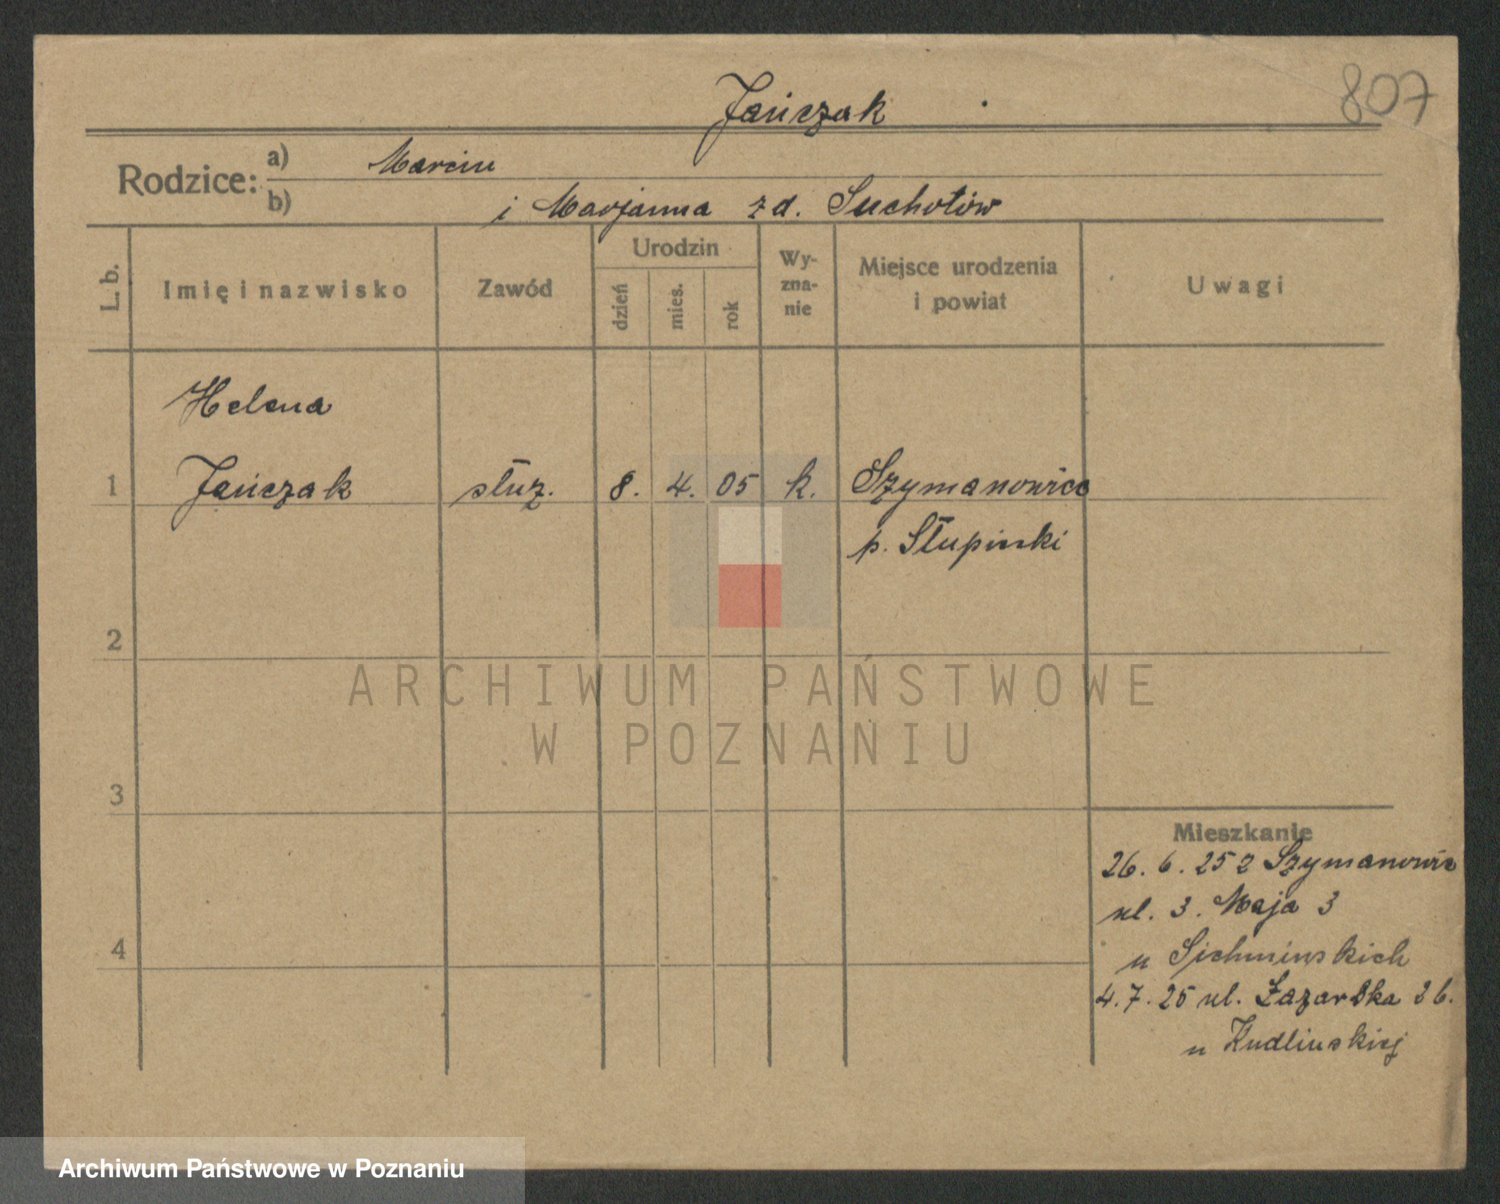 807
Jańczak
Rodzice:
a) Marcin
b) i Marjanna zd. Suchotów
L. b.
Imię i nazwisko
Zawód
Urodzin
dzień
mies.
rok
Wy-
zna-
nie
Miejsce urodzenia
i powiat
Uwagi
Helena
1 Jańczak służ. 8. 4. 05 k. Szymanowice
p. Słupinki
2
ARCHIWUM PAŃSTWOWE
W POZNANIU
3
Mieszkanie
26. 6. 25 z Szymanowic
ul. 3. Maja 3
u Sichmińskich
4
4. 7. 25 ul. Łazarska 2b.
u Kudlińskiej
Archiwum Państwowe w Poznaniu